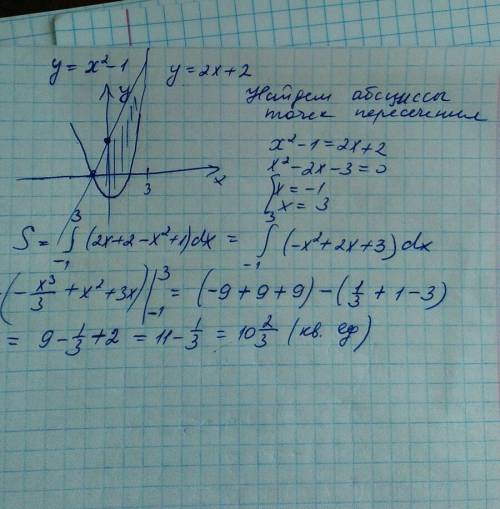 y = x² - 1
y = 2x + 2
y
x
3
Найдем абсциссы
точек пересечения
x² - 1 = 2x + 2
x² - 2x - 3 = 0
[x = -1
[x = 3
S = ∫₋₁³ (2x + 2 - x² + 1)dx = ∫₋₁³ (-x² + 2x + 3)dx
(-x³/3 + x² + 3x)|₋₁³ = (-9 + 9 + 9) - (1/3 + 1 - 3)
= 9 - 1/3 + 2 = 11 - 1/3 = 10 2/3 (кв. ед)